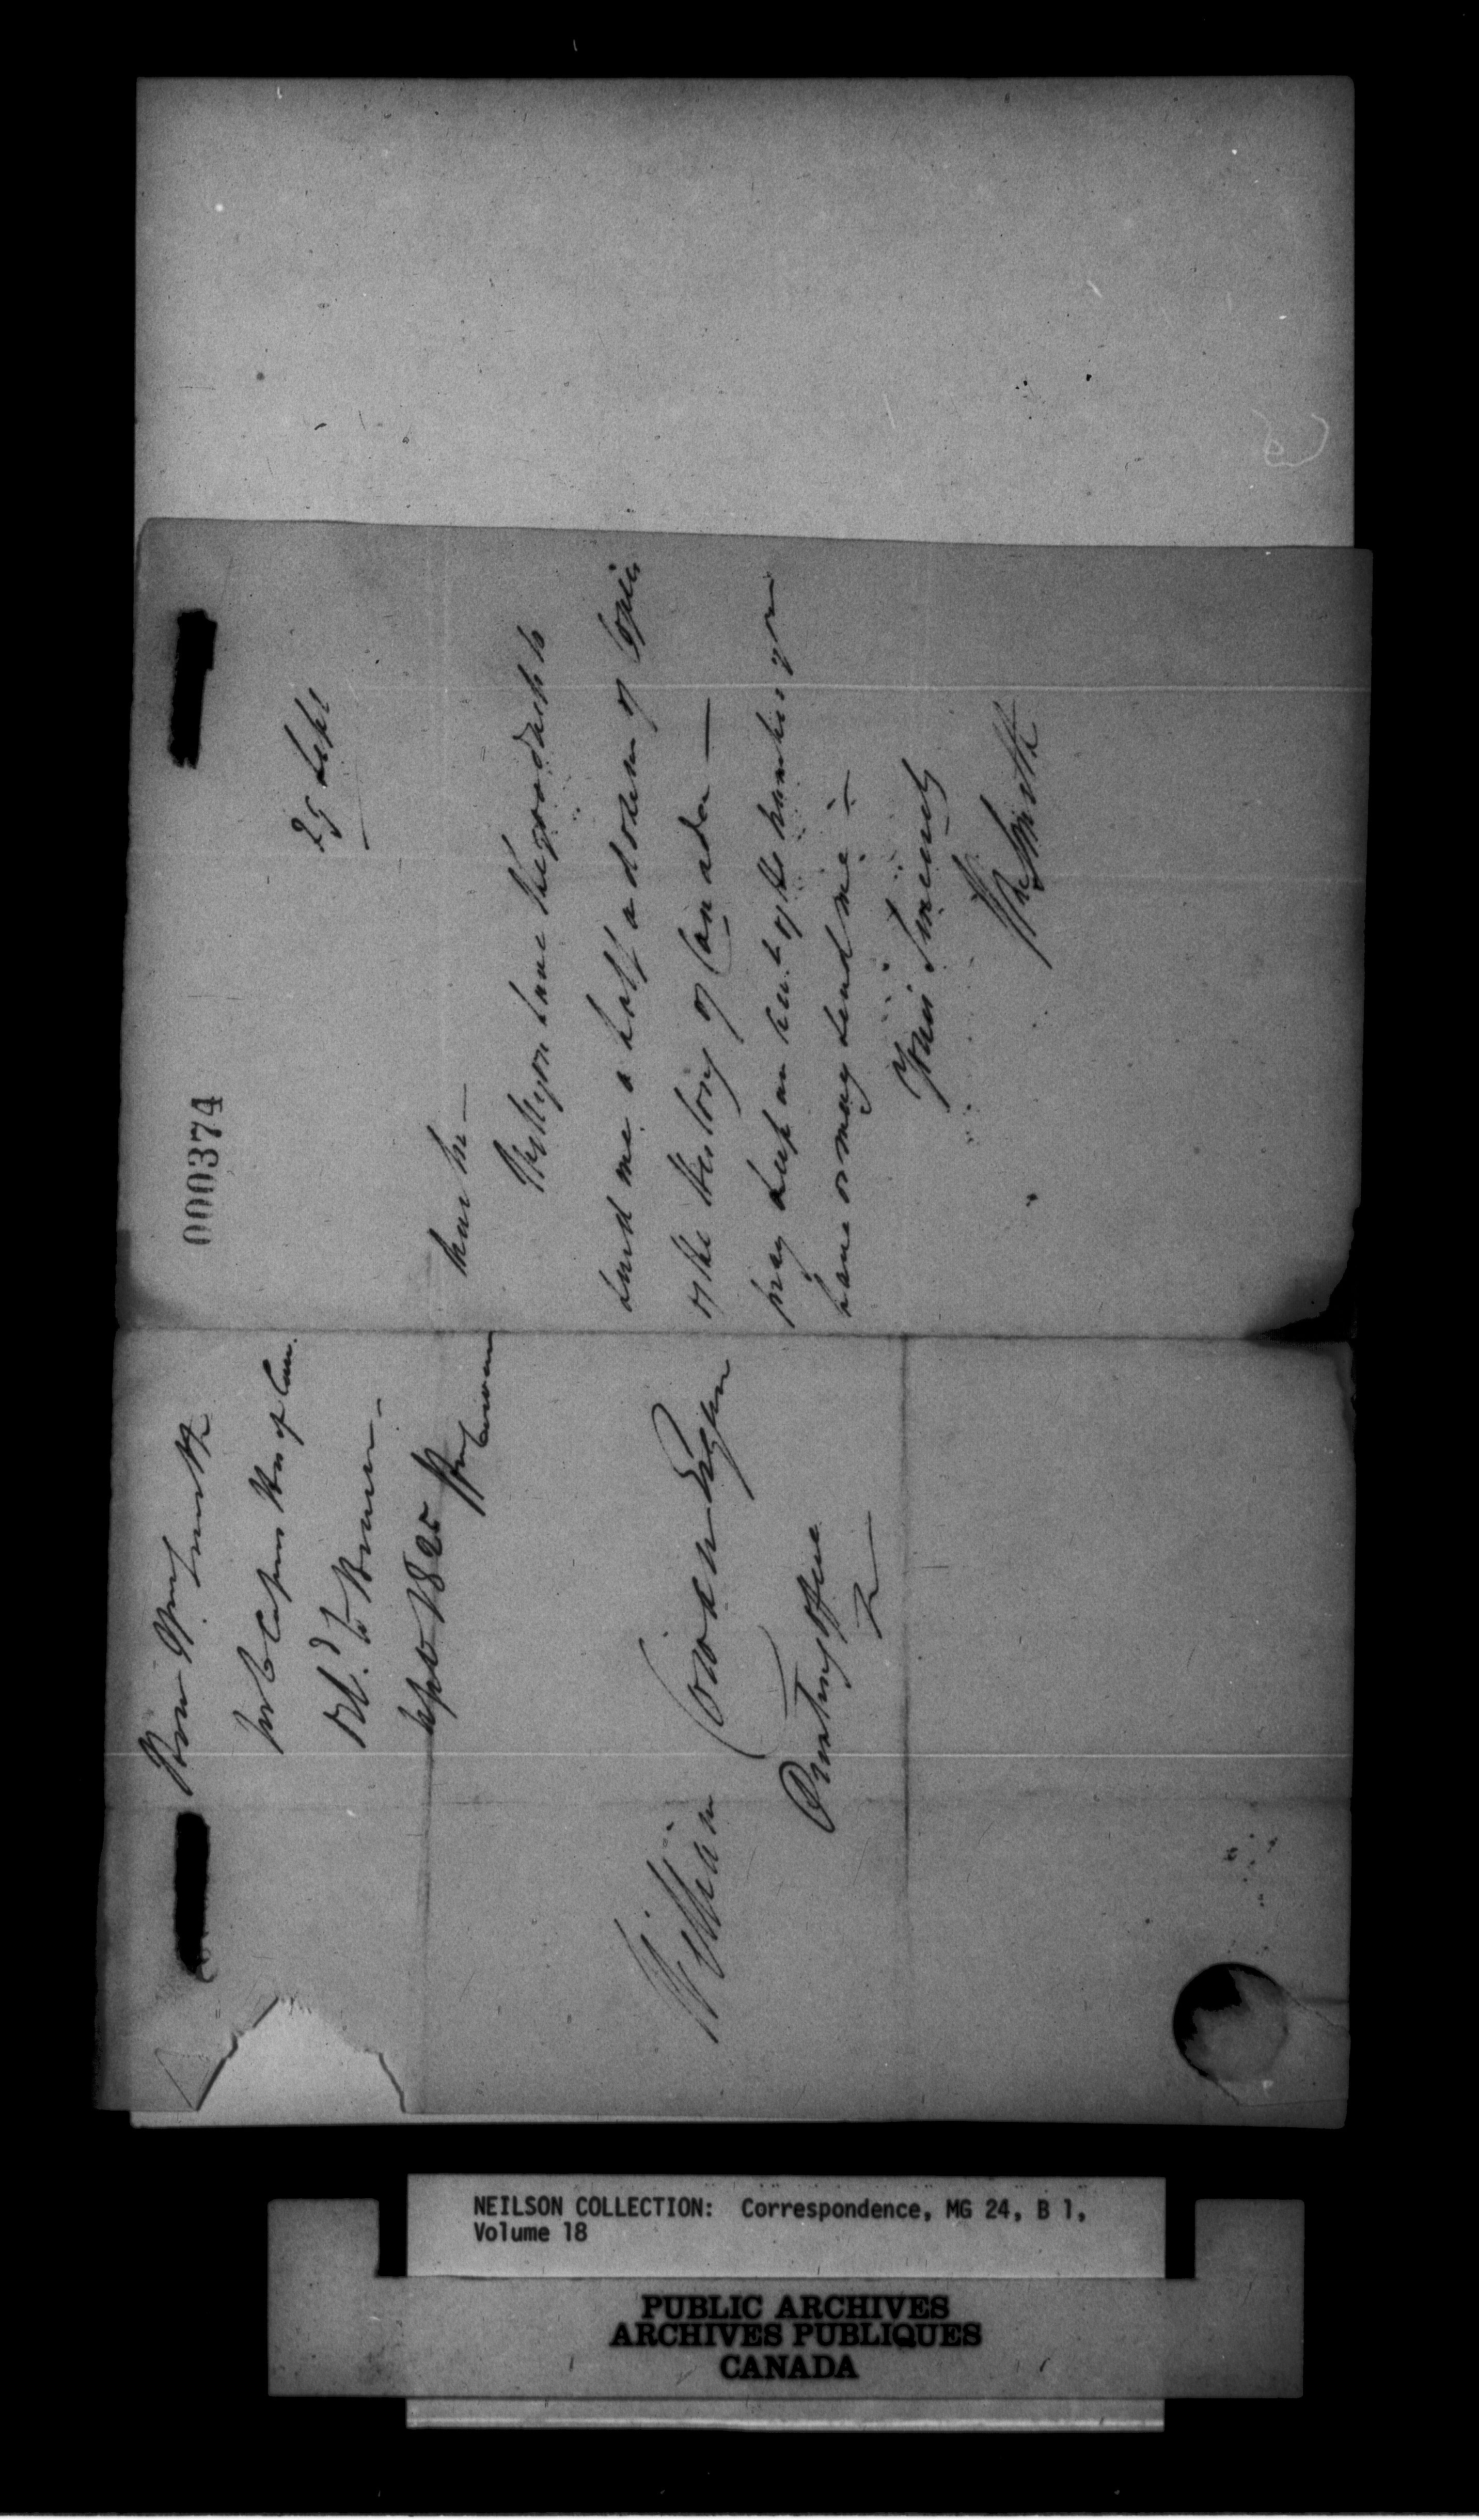 000374
29 Sept
Dear Sir —
Will you have the goodness to
send me a half a dozen of Copies
of the History of Canada —
pray keep an acct of the number you
have or may send me —
Yours Sincerely
Wm Smith
From Wm Smith
for Copies His of Can.
Sept 1825
William Cowan Esqre
Printing Office
NEILSON COLLECTION: Correspondence, MG 24, B 1,
Volume 18
PUBLIC ARCHIVES
ARCHIVES PUBLIQUES
CANADA